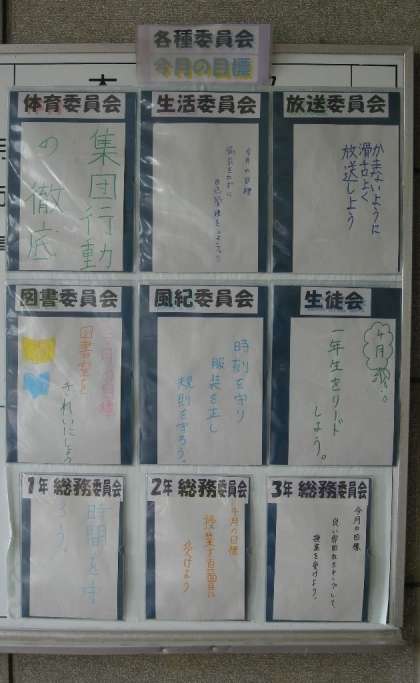 各種委員会
今月の目標
体育委員会
集団行動
の徹底
生活委員会
今月の目標
放送委員会
かまないように
滑舌よく
放送しよう
図書委員会
今月の目標
図書室を
きれいにしよう
風紀委員会
時刻を守り
服装を正し
規則を守ろう。
生徒会
4月
一年生をリード
しよう。
1年 総務委員会
時間を守
ろう
2年 総務委員会
今月の目標
授業を真面目に
受けよう
3年 総務委員会
今月の目標
授業を受けよう。